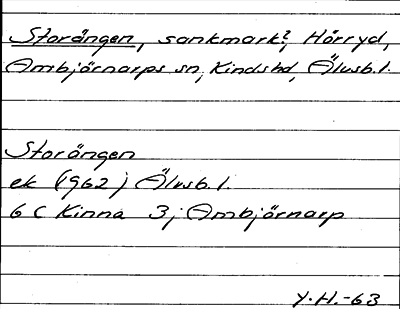 Storängen, sankmark?, Hårryd,
Ambjörnarps sn, Kindshd, Älvsb.l.
Storängen
ek (1962) Älvsb.l.
6 C Kinna 3j Ambjörnarp
Y.H.-63